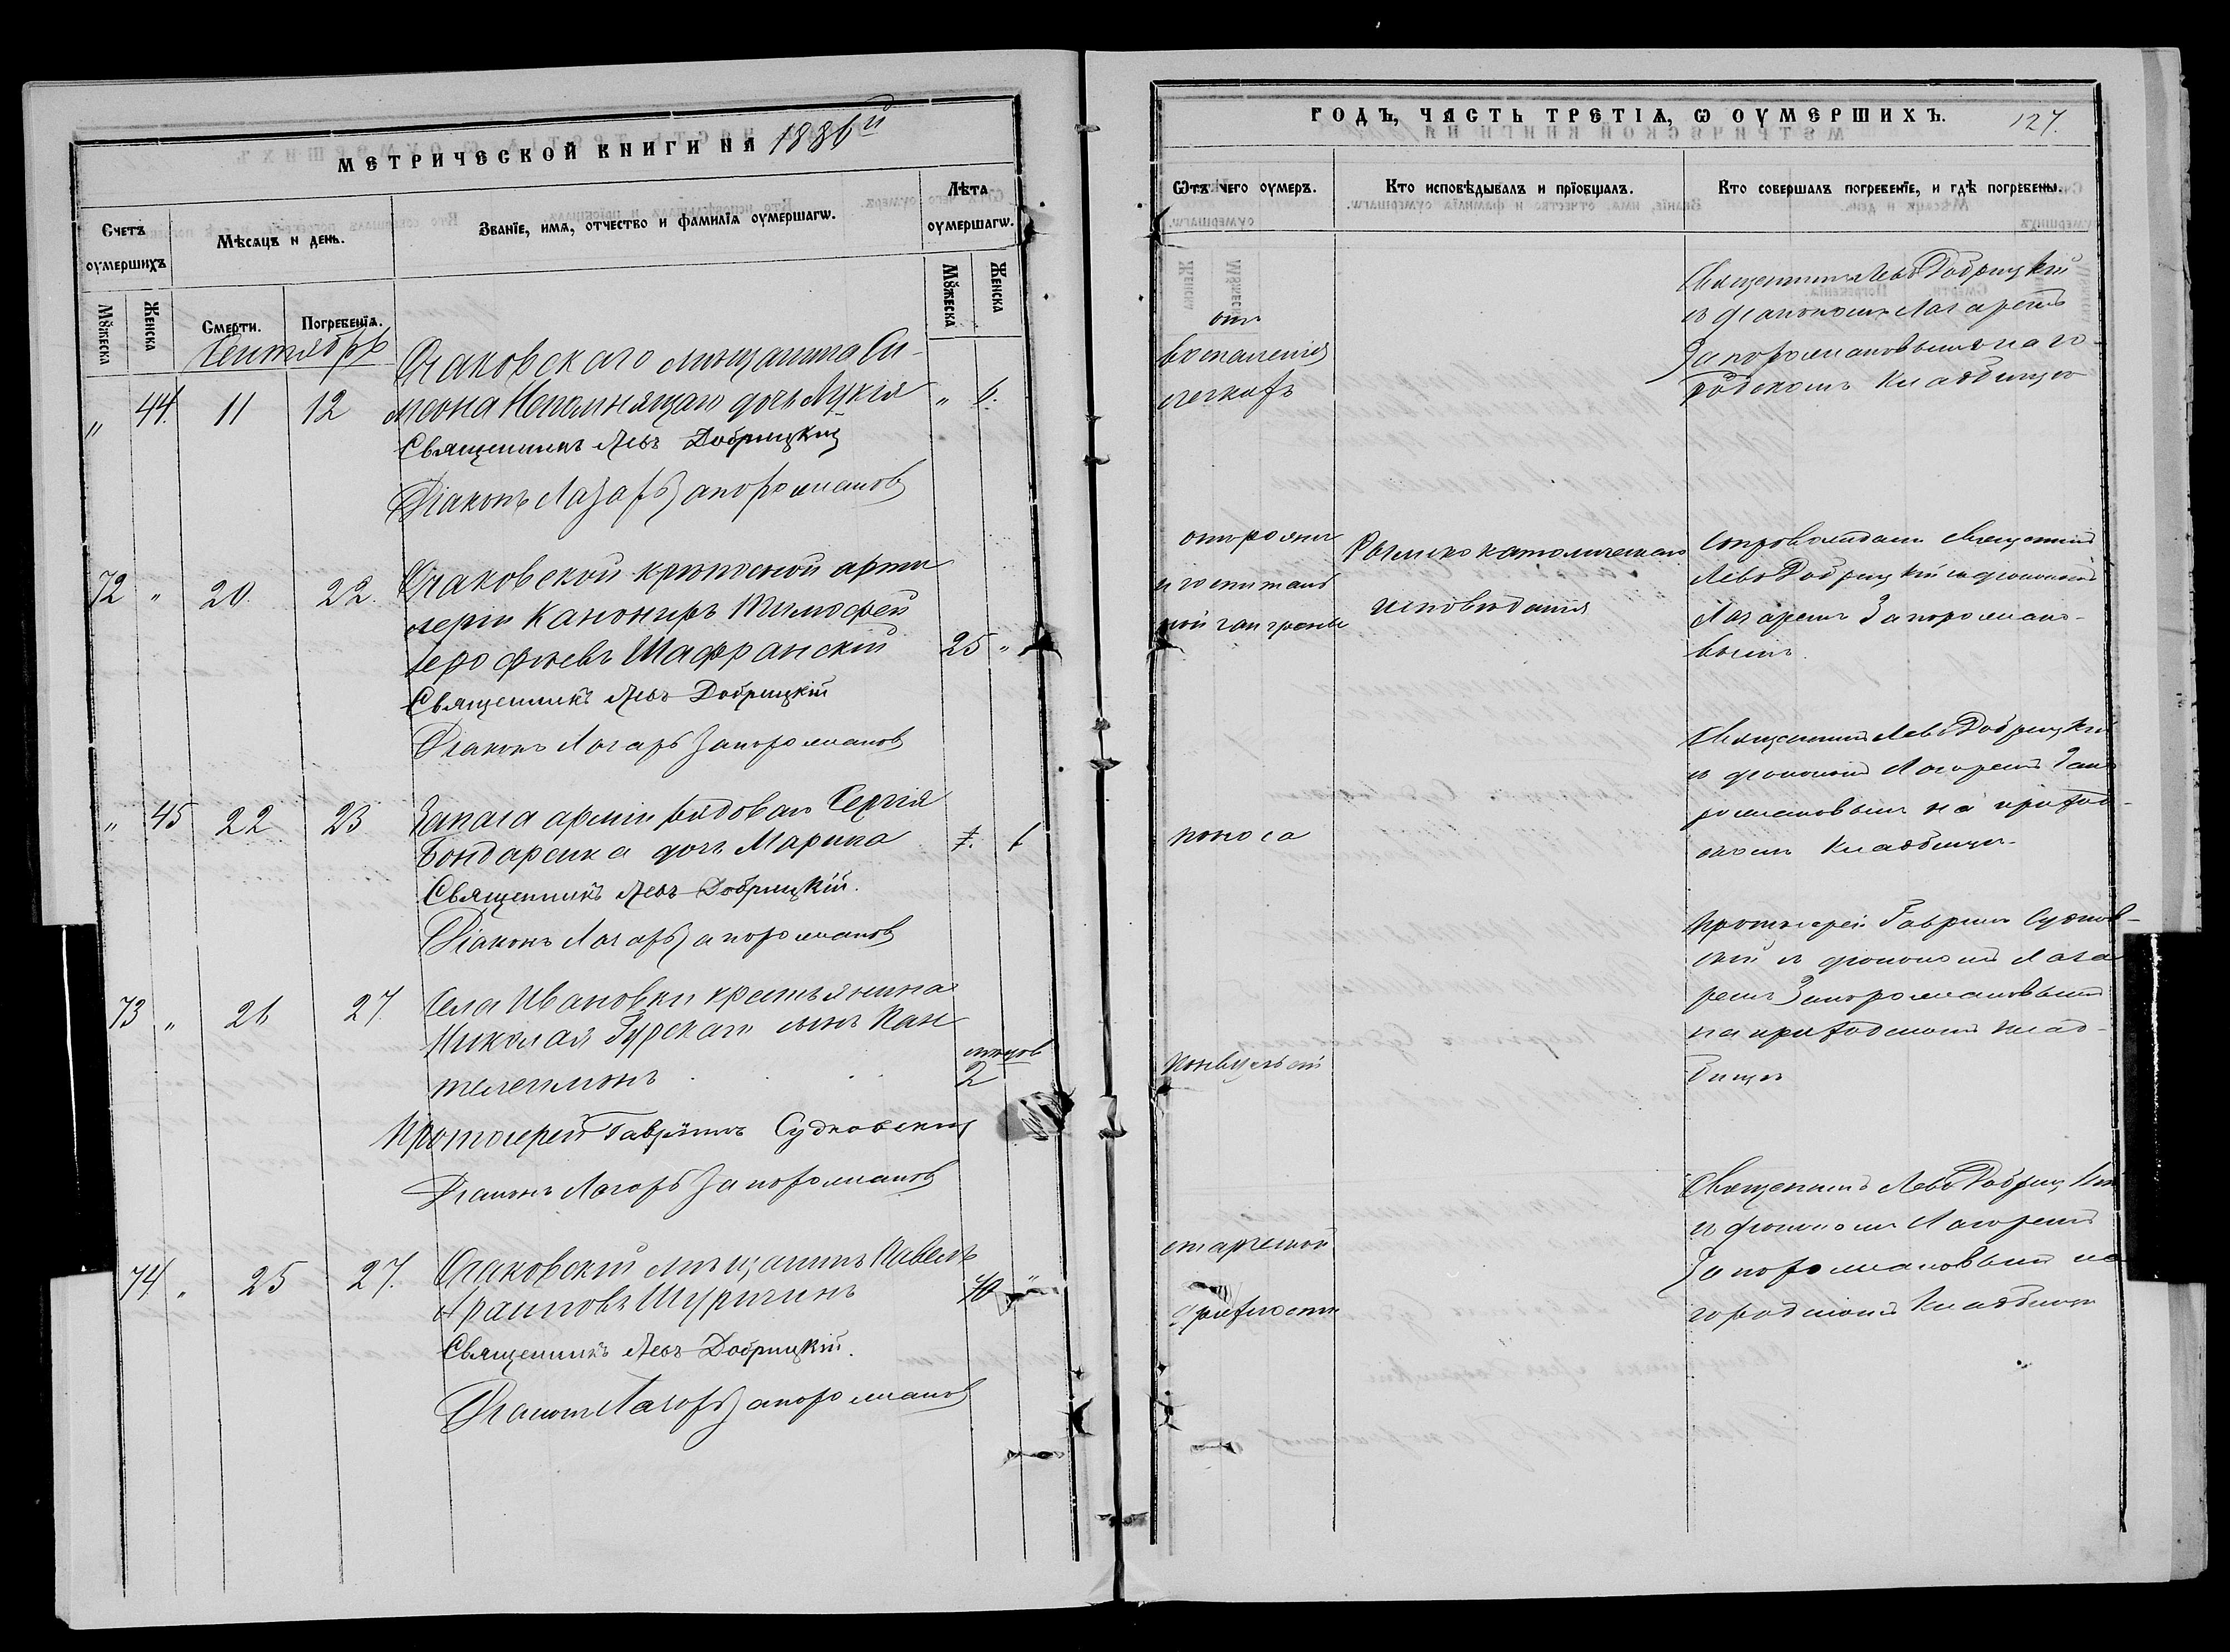 МЕТРИЧЕСКОЙ КНИГИ НА 1886й
Счетъ оумершихъ
Мѣсяцъ и день.
Званїе, имя, отчество и фамилїа оумершагѡ.
Лѣта оумершагѡ.
Мꙋжеска
Женска
Смерти.
Погребенїа.
Мꙋжеска
Женска
Сентябрь
Очаковскаго мѣщанина Си-
„ 44. 11 12 меона Непомнящаго дочь Лукія „ 6.
Священникъ Левъ Добрицкій
Діаконъ Лазарь Запорожанов
72 „ 20. 22. Очаковской крѣпостной арти
лерiи Канониръ Тимофей
Ерофѣевъ Шафранскій 25 „
Священникъ Левъ Добрицкій
Діаконъ Лазарь Запорожанов
„ 45 22 23 Запаса арміи рядоваго Сергія
Бондаренка дочь Марина
Священникъ Левъ Добрицкій.
Діаконъ Лазарь Запорожанов
73 „ 26 27. Села Ивановки крестьянина
Николая Гурскаго сынъ Пан
телеимонъ 2
Протоіерей Гавріилъ Судковскій
Діаконъ Лазарь Запорожанов
74 „ 25 27. Очаковскій мѣщанинъ Павелъ
40 „
Священникъ Левъ Добрицкій.
Діаконъ Лазарь Запорожанов
ГОДЪ, ЧАСТЬ ТРЕТІА, Ѡ ОУМЕРШИХЪ. 127.
Ѿтъ чего оумеръ.
Кто исповѣдывалъ и прїобщалъ.
Кто совершалъ погребенїе, и гдѣ погребены.
отъ
воспаленія
легкихъ
Священникъ Левъ Добрицкій
съ діакономъ Лазаремъ
Запорожановымъ на го-
родскомъ кладбищѣ
отъ рожи
и госпиталь
ной гангрены
Римско католическаго
исповѣданія
Сопровождалъ священникъ
Левъ Добрицкій съ діакономъ
Лазаремъ Запорожано-
вымъ
поноса
Священникъ Левъ Добрицкій
съ діакономъ Лазаремъ Запо
рожановымъ на приход-
скомъ кладбищѣ
конвульсій
Протоіерей Гавріилъ Судков-
скій съ діакономъ Лаза
ремъ Запорожановымъ
на приходскомъ клад-
бищѣ
старческой
дряхлости
Священникъ Левъ Добрицкій
съ діакономъ Лазаремъ
Запорожановымъ на
городскомъ кладбищѣ